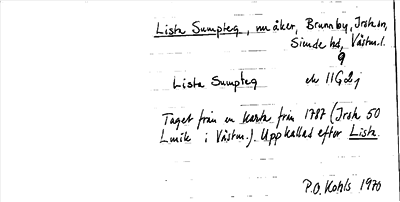 Lista Sumpteg, småker, Brunnby, Irsta sn,
Siende hd, Västm.l.
9
Lista Sumpteg ek 11G2j
Taget från en karta från 1787 (Irsta 50
Lmik i Västm.). Uppkallad efter Lista.
P.O. Kohls 1970